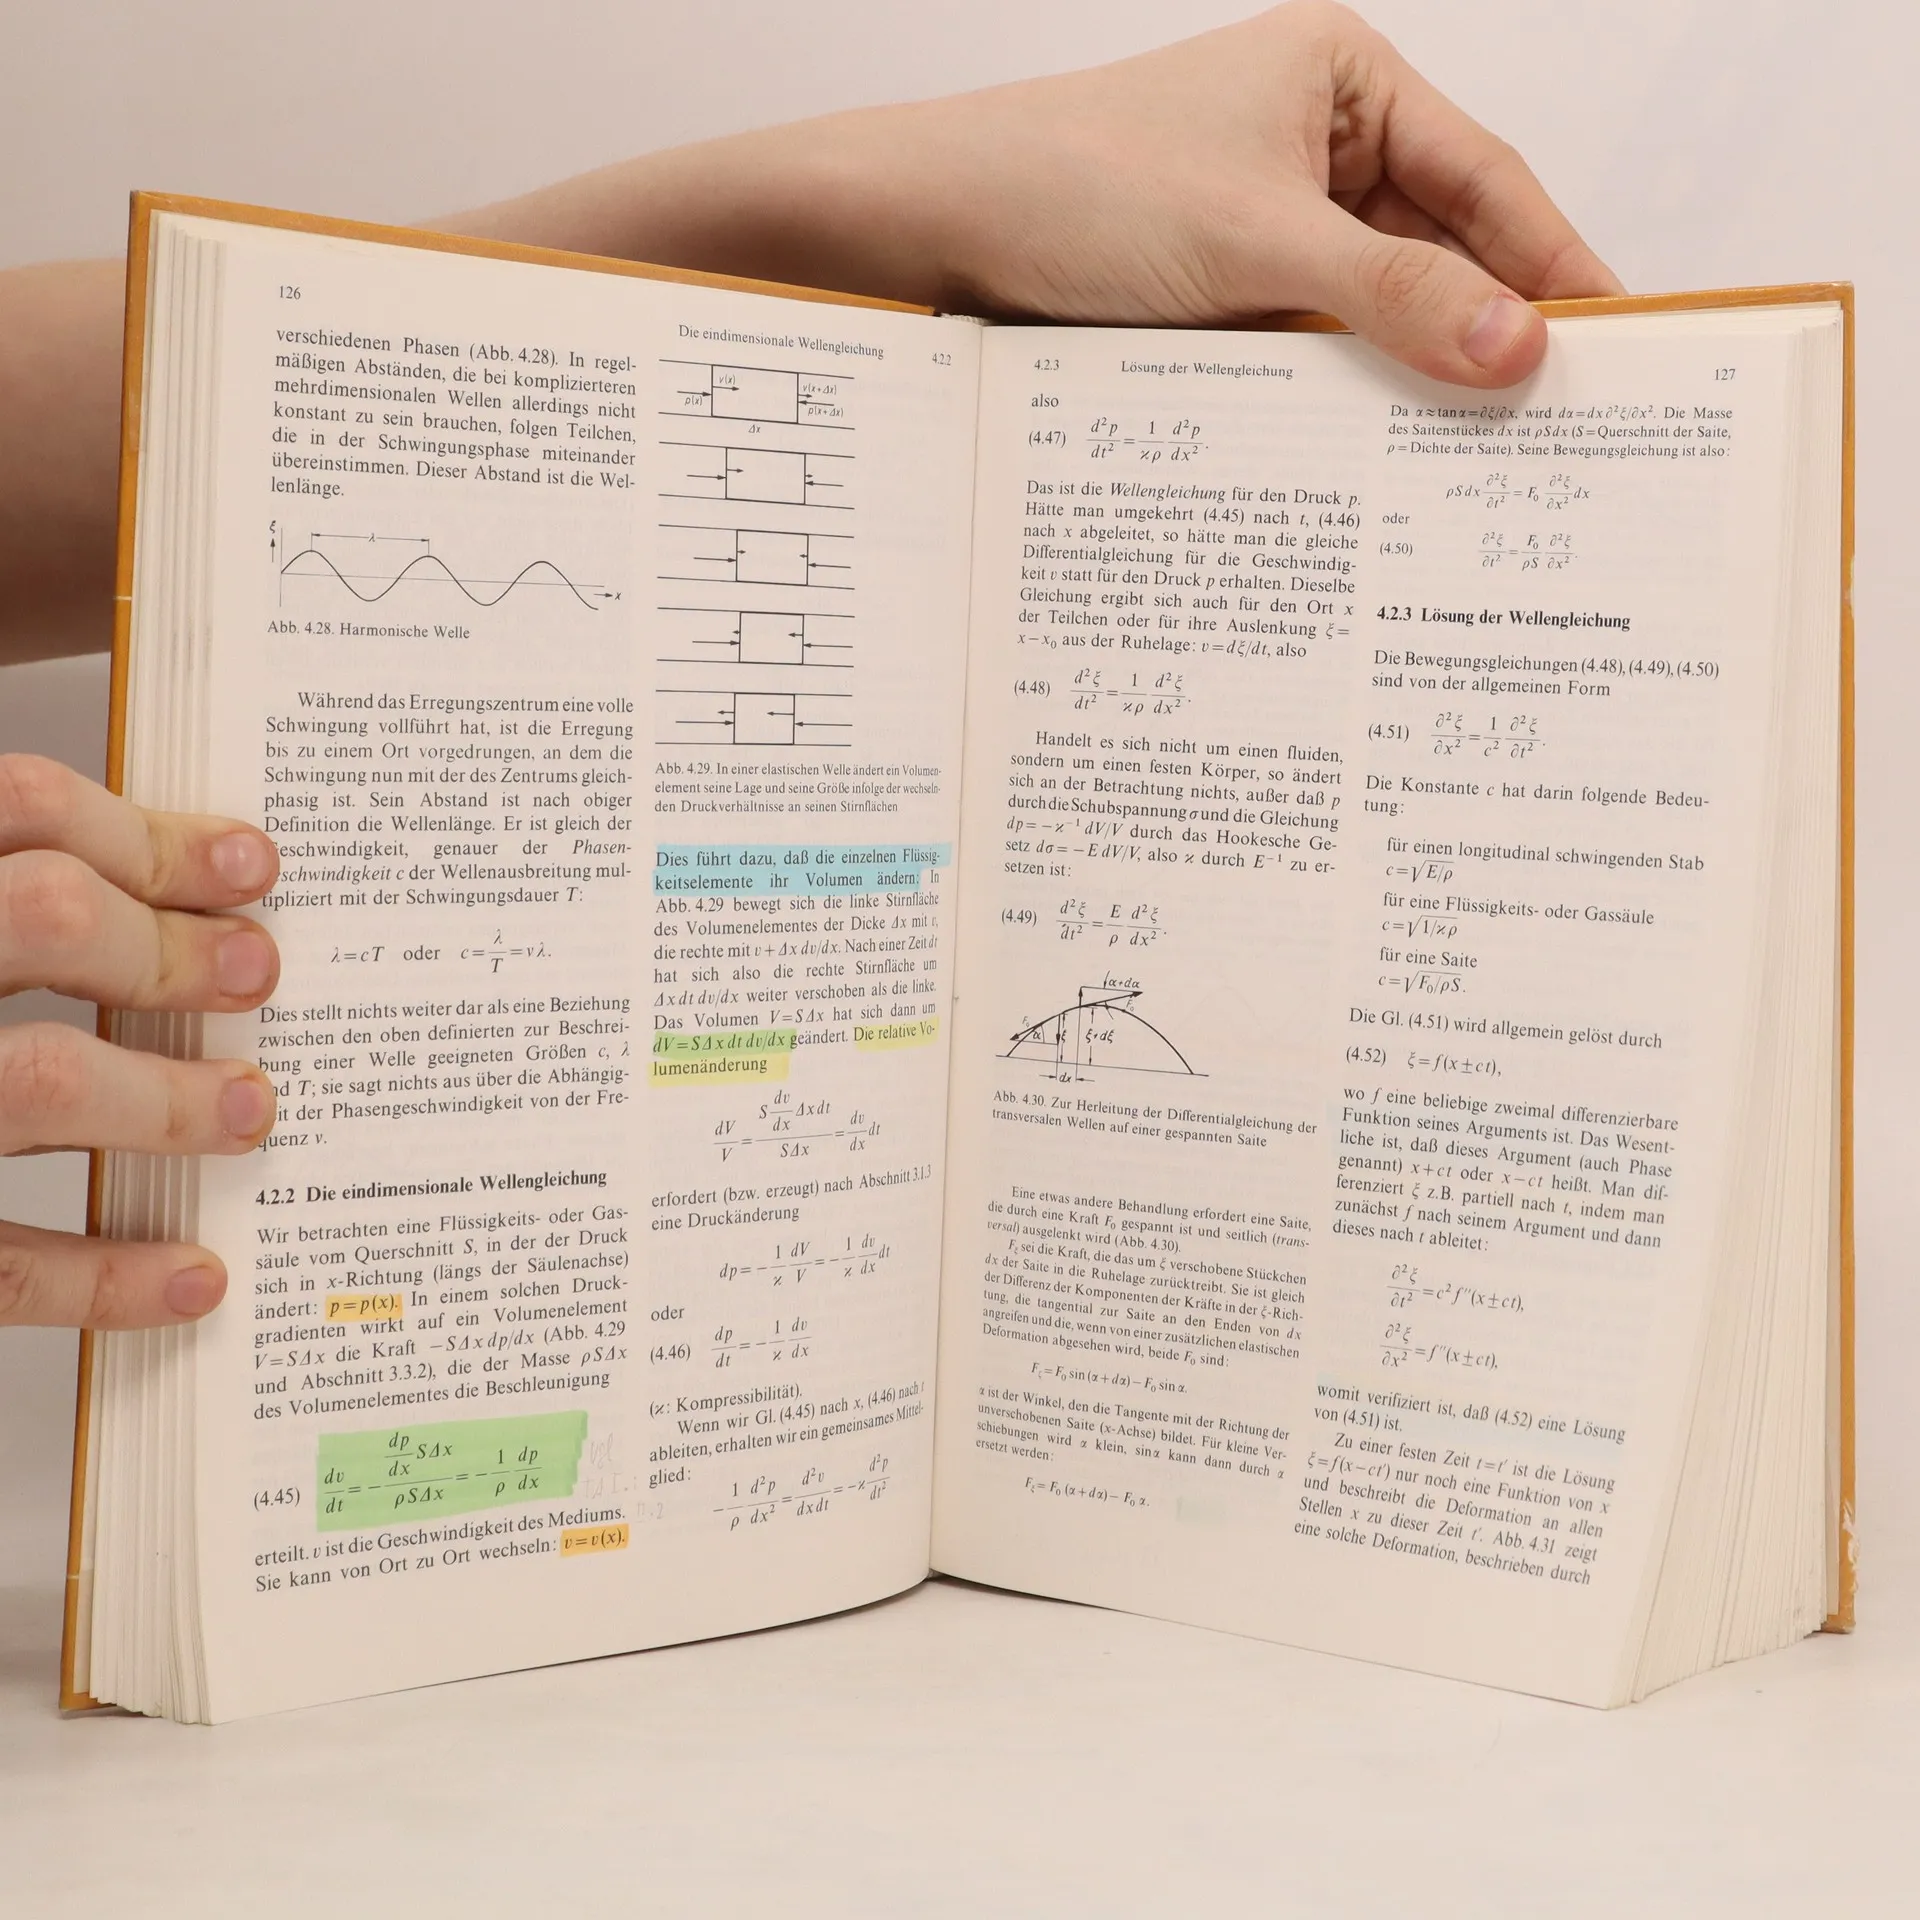 126
verschiedenen Phasen (Abb. 4.28). In regel-
mäßigen Abständen, die bei komplizierteren
mehrdimensionalen Wellen allerdings nicht
konstant zu sein brauchen, folgen Teilchen,
die in der Schwingungsphase miteinander
übereinstimmen. Dieser Abstand ist die Wel-
lenlänge.
ξ
λ
x
Abb. 4.28. Harmonische Welle
Während das Erregungszentrum eine volle
Schwingung vollführt hat, ist die Erregung
bis zu einem Ort vorgedrungen, an dem die
Schwingung nun mit der des Zentrums gleich-
phasig ist. Sein Abstand ist nach obiger
Definition die Wellenlänge. Er ist gleich der
eschwindigkeit, genauer der Phasen-
schwindigkeit c der Wellenausbreitung mul-
tipliziert mit der Schwingungsdauer T:
λ=cT oder c=λ/T=νλ.
Dies stellt nichts weiter dar als eine Beziehung
zwischen den oben definierten zur Beschrei-
bung einer Welle geeigneten Größen c, λ
nd T; sie sagt nichts aus über die Abhängig-
it der Phasengeschwindigkeit von der Fre-
quenz ν.
4.2.2 Die eindimensionale Wellengleichung
Wir betrachten eine Flüssigkeits- oder Gas-
säule vom Querschnitt S, in der der Druck
sich in x-Richtung (längs der Säulenachse)
ändert: p=p(x). In einem solchen Druck-
gradienten wirkt auf ein Volumenelement
V=SΔx die Kraft −SΔx dp/dx (Abb. 4.29
und Abschnitt 3.3.2), die der Masse ρSΔx
des Volumenelementes die Beschleunigung
(4.45) dv/dt = −(dp/dx SΔx)/(ρSΔx) = −1/ρ dp/dx
erteilt. v ist die Geschwindigkeit des Mediums.
Sie kann von Ort zu Ort wechseln: v=v(x).
Die eindimensionale Wellengleichung 4.2.2
v(x) v(x+Δx)
p(x) p(x+Δx)
Δx
Abb. 4.29. In einer elastischen Welle ändert ein Volumen-
element seine Lage und seine Größe infolge der wechseln-
den Druckverhältnisse an seinen Stirnflächen
Dies führt dazu, daß die einzelnen Flüssig-
keitselemente ihr Volumen ändern: In
Abb. 4.29 bewegt sich die linke Stirnfläche
des Volumenelementes der Dicke Δx mit v,
die rechte mit v+Δx dv/dx. Nach einer Zeit dt
hat sich also die rechte Stirnfläche um
Δx dt dv/dx weiter verschoben als die linke.
Das Volumen V=SΔx hat sich dann um
dV=SΔx dt dv/dx geändert. Die relative Vo-
lumenänderung
dV/V = (S dv/dx Δx dt)/(SΔx) = dv/dx dt
erfordert (bzw. erzeugt) nach Abschnitt 3.1.3
eine Druckänderung
dp = −1/ϰ dV/V = −1/ϰ dv/dx dt
oder
(4.46) dp/dt = −1/ϰ dv/dx
(ϰ: Kompressibilität).
Wenn wir Gl. (4.45) nach x, (4.46) nach t
ableiten, erhalten wir ein gemeinsames Mittel-
glied:
−1/ρ d²p/dx² = d²v/dxdt = −ϰ d²p/dt²
4.2.3 Lösung der Wellengleichung 127
also
(4.47) d²p/dt² = 1/ϰρ d²p/dx².
Das ist die Wellengleichung für den Druck p.
Hätte man umgekehrt (4.45) nach t, (4.46)
nach x abgeleitet, so hätte man die gleiche
Differentialgleichung für die Geschwindig-
keit v statt für den Druck p erhalten. Dieselbe
Gleichung ergibt sich auch für den Ort x
der Teilchen oder für ihre Auslenkung ξ=
x−x₀ aus der Ruhelage: v=dξ/dt, also
(4.48) d²ξ/dt² = 1/ϰρ d²ξ/dx².
Handelt es sich nicht um einen fluiden,
sondern um einen festen Körper, so ändert
sich an der Betrachtung nichts, außer daß p
durch die Schubspannung σ und die Gleichung
dp=−ϰ⁻¹ dV/V durch das Hookesche Ge-
setz dσ=−E dV/V, also ϰ durch E⁻¹ zu er-
setzen ist:
(4.49) d²ξ/dt² = E/ρ d²ξ/dx².
α+dα
F₀ F₀
α ξ ξ+dξ
dx
Abb. 4.30. Zur Herleitung der Differentialgleichung der
transversalen Wellen auf einer gespannten Saite
Eine etwas andere Behandlung erfordert eine Saite,
die durch eine Kraft F₀ gespannt ist und seitlich (trans-
versal) ausgelenkt wird (Abb. 4.30).
Fξ sei die Kraft, die das um ξ verschobene Stückchen
dx der Saite in die Ruhelage zurücktreibt. Sie ist gleich
der Differenz der Komponenten der Kräfte in der ξ-Rich-
tung, die tangential zur Saite an den Enden von dx
angreifen und die, wenn von einer zusätzlichen elastischen
Deformation abgesehen wird, beide F₀ sind:
Fξ=F₀ sin(α+dα)−F₀ sin α.
α ist der Winkel, den die Tangente mit der Richtung der
unverschobenen Saite (x-Achse) bildet. Für kleine Ver-
schiebungen wird α klein, sin α kann dann durch α
ersetzt werden:
Fξ=F₀ (α+dα)−F₀ α.
Da α≈tan α=∂ξ/∂x, wird dα=dx ∂²ξ/∂x². Die Masse
des Saitenstückes dx ist ρS dx (S=Querschnitt der Saite,
ρ=Dichte der Saite). Seine Bewegungsgleichung ist also:
ρS dx ∂²ξ/∂t² = F₀ ∂²ξ/∂x² dx
oder
(4.50) ∂²ξ/∂t² = F₀/ρS ∂²ξ/∂x².
4.2.3 Lösung der Wellengleichung
Die Bewegungsgleichungen (4.48), (4.49), (4.50)
sind von der allgemeinen Form
(4.51) ∂²ξ/∂x² = 1/c² ∂²ξ/∂t².
Die Konstante c hat darin folgende Bedeu-
tung:
für einen longitudinal schwingenden Stab
c=√E/ρ
für eine Flüssigkeits- oder Gassäule
c=√1/ϰρ
für eine Saite
c=√F₀/ρS.
Die Gl. (4.51) wird allgemein gelöst durch
(4.52) ξ=f(x±ct),
wo f eine beliebige zweimal differenzierbare
Funktion seines Arguments ist. Das Wesent-
liche ist, daß dieses Argument (auch Phase
genannt) x+ct oder x−ct heißt. Man dif-
ferenziert ξ z.B. partiell nach t, indem man
zunächst f nach seinem Argument und dann
dieses nach t ableitet:
∂²ξ/∂t² = c² f″(x±ct),
∂²ξ/∂x² = f″(x±ct),
womit verifiziert ist, daß (4.52) eine Lösung
von (4.51) ist.
Zu einer festen Zeit t=t′ ist die Lösung
ξ=f(x−ct′) nur noch eine Funktion von x
und beschreibt die Deformation an allen
Stellen x zu dieser Zeit t′. Abb. 4.31 zeigt
eine solche Deformation, beschrieben durch